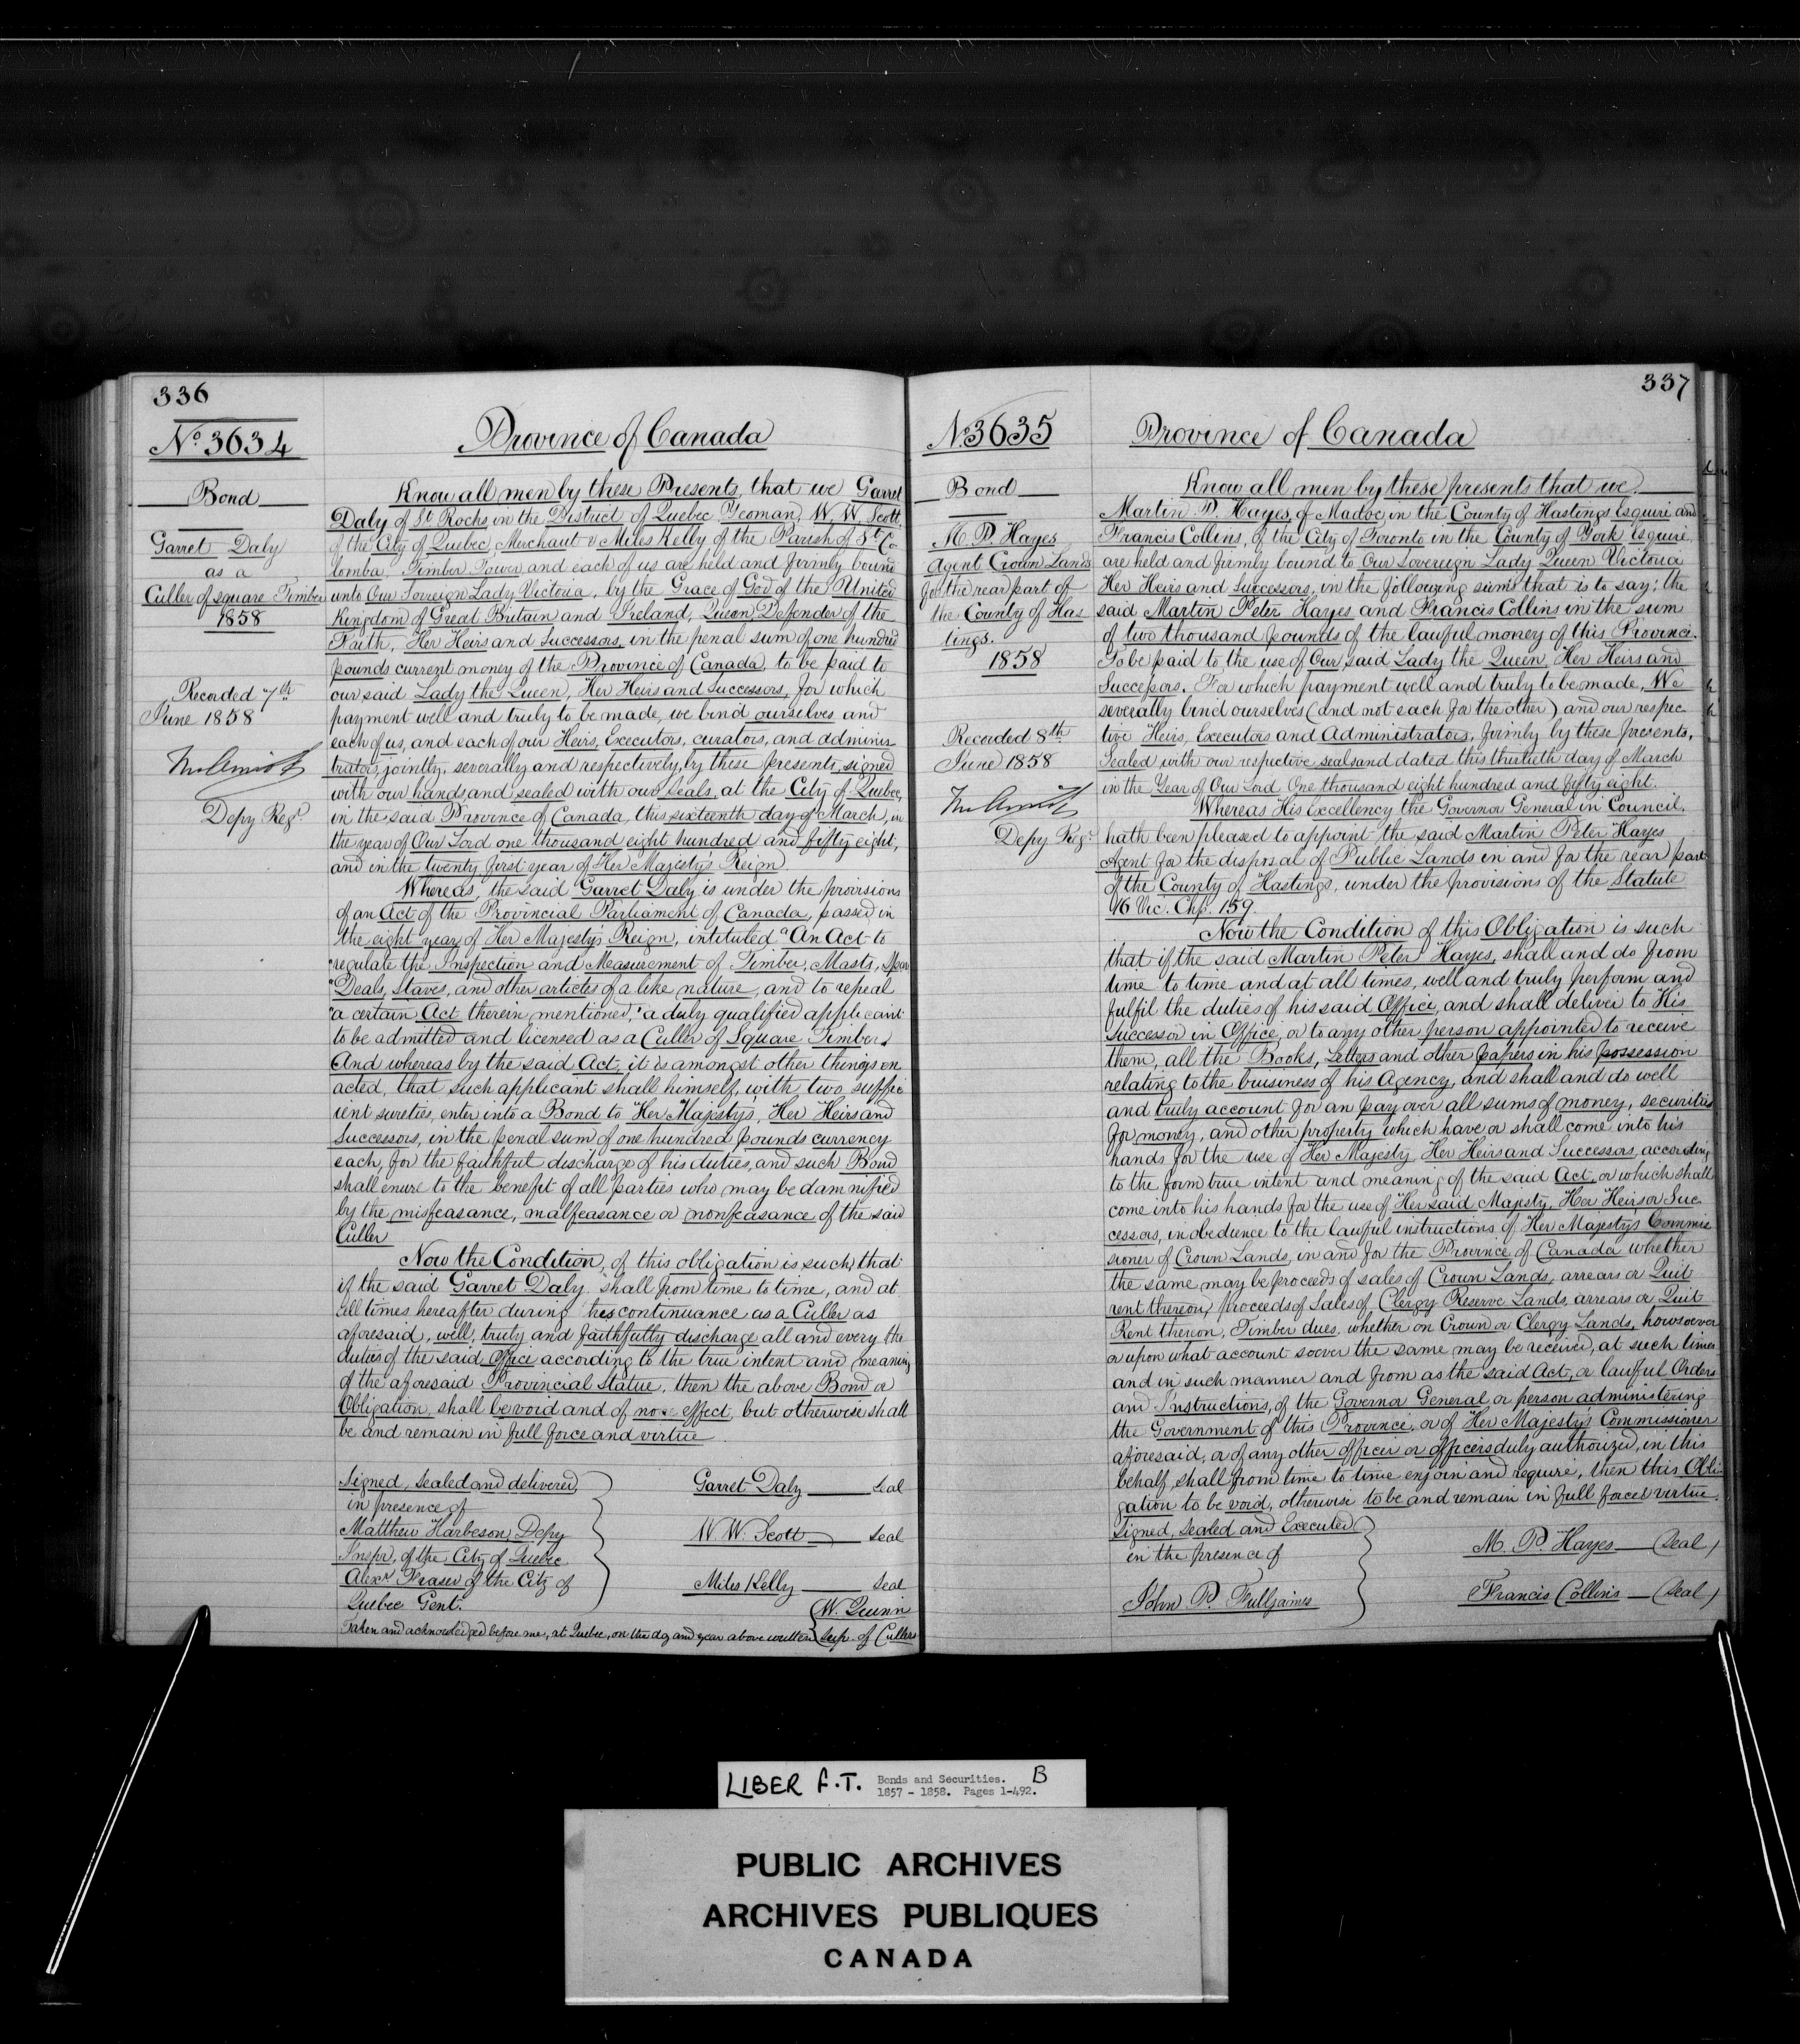 336
No 3634
Bond
Garret Daly
as a
Culler of square Timber
1858
Recorded 7th
June 1858
Depy Regr
Province of Canada
Know all men by these Presents, that we Garret
Daly of St Rochs, in the District of Quebec Yeoman, W. W. Scott,
of the City of Quebec, Merchant & Miles Kelly of the Parish of St Co-
lomba, Timber Tower, and each of us are held and firmly bound
unto Our Sovreign Lady Victoria, by the Grace of God of the United
Kingdom of Great Britain and Ireland, Queen, Defender of the
Faith, Her Heirs and Successors, in the penal sum of one hundred
pounds current money of the Province of Canada, to be paid to
our said Lady the Queen, Her Heirs and Successors, for which
payment well and truly to be made, we bind ourselves and
each of us, and each of our Heirs, Executors, curators, and adminis-
trators, jointly, severally and respectively, by these presents, signed
with our hands and sealed with our Seals, at the City of Quebec,
in the said Province of Canada, this sixteenth day of March, in
the year of Our Lord one thousand eight hundred and fifty eight,
and in the twenty first year of Her Majesty's Reign.
Whereas, the said Garret Daly is under the provisions
of an Act of the Provincial Parliament of Canada, passed in
the eight year of Her Majesty's Reign, intituted "An Act to
"regulate the Inspection and Measurement of Timber, Masts, Spars
"Deals, Staves, and other articles of a like nature, and to repeal
"a certain Act therein mentioned," a duly qualified applicant
to be admitted and licensed as a Culler of Square Timber.
And whereas by the said Act, it is amongst other things en-
acted, that such applicant shall himself, with two suffic
ient sureties, enter into a Bond to Her Majesty's, Her Heirs and
Successors, in the penal sum of one hundred pounds currency
each, for the faithful discharge of his duties, and such Bond
shall enure to the benefit of all parties who may be damnified
by the misfeasance, malfeasance or nonfeasance of the said
Culler
Now the Condition, of this obligation is such, that
if the said Garret Daly shall from time to time, and at
all times hereafter during his continuance as a Culler as
aforesaid, well, truly and faithfully discharge all and every the
duties of the said Office according to the true intent and meaning
of the aforesaid Provincial Statue, then the above Bond or
Obligation, shall be void and of none effect, but otherwise shall
be and remain in full force and virtue
Signed, sealed and delivered,
in presence of
Matthew Harbeson Depy
Inspr, of the City of Quebec
Alexr Fraser of the City of
Quebec Gent.
Garret Daly Seal
W. W. Scott Seal
Miles Kelly Seal
Taken and acknowledged before me, at Quebec, on the day and year above written
W. Quinn
Sup. of Cullers
337
No 3635
Bond
M. P. Hayes
Agent Crown Lands
for the rear part of
the County of Has
tings.
1858
Recorded 8th
June 1858
Depy Regr
Province of Canada
Know all men by these presents that we
Martin P. Hayes, of Madoc, in the County of Hastings Esquire and
Francis Collins, of the City of Toronto in the County of York Esquire,
are held and firmly bound to Our Sovereign Lady Queen Victoria
Her Heirs and Successors, in the following sums that is to say; the
said Martin Peter Hayes and Francis Collins in the sum
of two thousand pounds of the lawful money of this Province.
To be paid to the use of Our said Lady the Queen, Her Heirs and
Successors. For which payment well and truly to be made, We
severally bind ourselves (and not each for the other) and our respec-
tive Heirs, Executors and Administrators, firmly by these presents,
Sealed with our respective seals and dated this thirtieth day of March
in the Year of Our Lord One thousand eight hundred and fifty eight.
Whereas His Excellency the Governor General in Council.
hath been pleased to appoint the said Martin Peter Hayes
Agent for the disposal of Public Lands in and for the rear part
of the County of Hastings, under the provisions of the Statute
16 Vic. Chp. 159.
Now the Condition of this Obligation is such
that if the said Martin Peter Hayes, shall and do from
time to time and at all times, well and truly perform and
fulfil the duties of his said Office, and shall deliver to His
successor in Office, or to any other person appointed to receive
them, all the Books, Letters and other papers in his possession
relating to the business of his Agency, and shall and do well
and truly account for an pay over all sums of money, securities
for money, and other property which have or shall come into his
hands for the use of Her Majesty, Her Heirs and Successors, according
to the form true intent and meaning of the said Act, or which shall
come into his hands for the use of Her said Majesty, Her Heirs or Suc-
cessors, in obedience to the lawful instructions of Her Majesty's Commis
sioner of Crown Lands, in and for the Province of Canada whether
the same may be proceeds of sales of Crown Lands, arrears or Quit
rent thereon, proceeds of Sales of Clergy Reserve Lands, arrears or Quit
Rent thereon, Timber dues, whether on Crown or Clergy Lands, howsoever
or upon what account soever the same may be received, at such times
and in such manner and from as the said Act, or lawful Orders
and Instructions, of the Governor General or person administering
the Government of this Province, or of Her Majesty's Commissioner
aforesaid, or of any other officer or officers duly authorized, in this
behalf, shall from time to time enjoin and require, then this Obli-
gation to be void, otherwise to be and remain in full force & virtue.
Signed, sealed and Executed
in the presence of
John P. Fulljames
M. P. Hayes (Seal)
Francis Collins (Seal)
LIBER F.T. Bonds and Securities. B
1857 - 1858. Pages 1-492.
PUBLIC ARCHIVES
ARCHIVES PUBLIQUES
CANADA